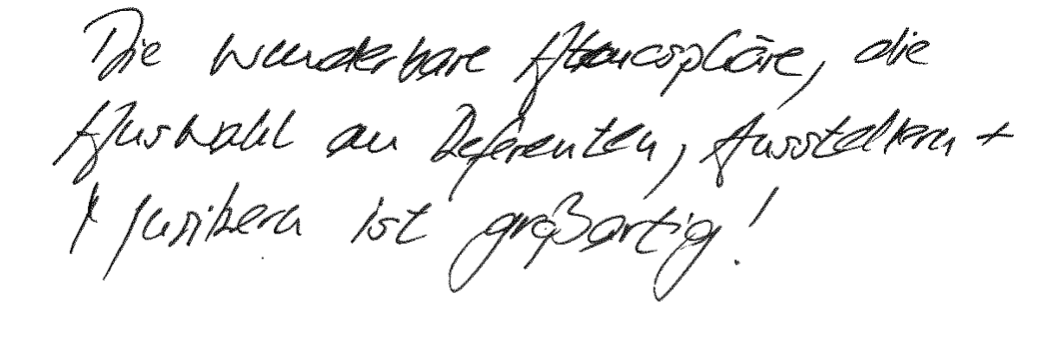 Die wunderbare Atmosphäre, die
Auswahl an Referenten, Ausstellern +
Musikern ist großartig!